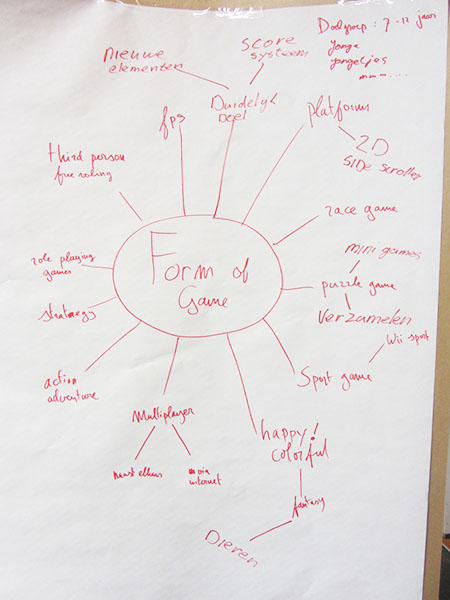 Doelgroep : 7 - 12 jaar
Jonge
jongetjes
mmm....
Nieuwe
elementen
score
systeem
fps
Duidelijk
Doel
platform
2D
SIDE scroller
third person
free roaling
race game
mini games
role playing
games
Form of
Game
puzzle game
Verzamelen
strategy
Wii sport
Sport game
action
adventure
Multiplayer
happy!
colorful
naast elkaar
via
internet
fantasy
Dieren